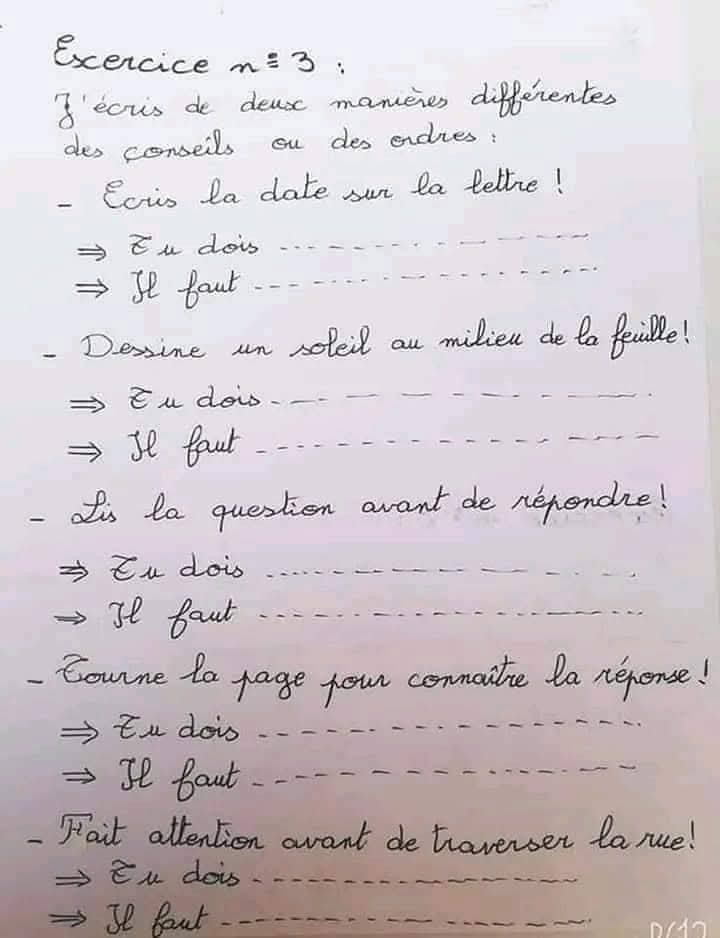 Excercice n° 3 :
J'écris de deux manières différentes
des conseils ou des ordres :
- Ecris la date sur la lettre !
⇒ Tu dois ..............
⇒ Il faut ..............
- Dessine un soleil au milieu de la feuille !
⇒ Tu dois ..............
⇒ Il faut ..............
- Lis la question avant de répondre !
⇒ Tu dois ..............
⇒ Il faut ..............
- Tourne la page pour connaître la réponse !
⇒ Tu dois ..............
⇒ Il faut ..............
- Fait attention avant de traverser la rue !
⇒ Tu dois ..............
⇒ Il faut ..............